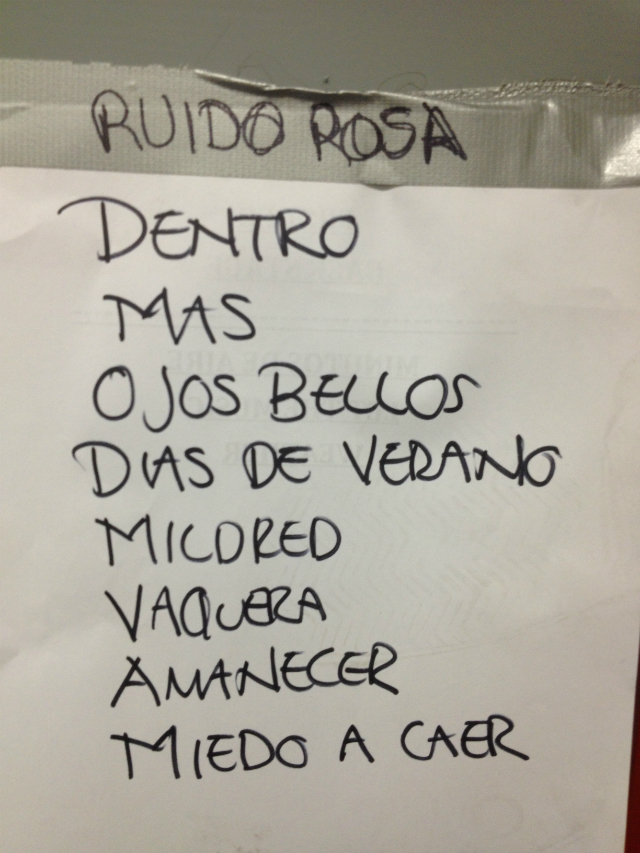 RUIDO ROSA
DENTRO
MAS
OJOS BELLOS
DIAS DE VERANO
MILDRED
VAQUERA
AMANECER
MIEDO A CAER